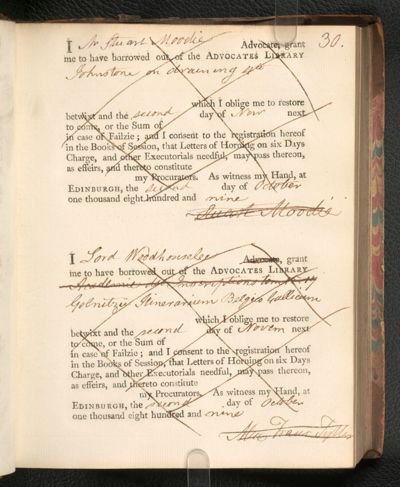 30.
I Mr Stuart Moodie Advocate, grant
me to have borrowed out of the ADVOCATES LIBRARY
Johnstone on draining 4to
which I oblige me to restore
betwixt and the second day of Nov next
to come, or the Sum of
in case of Failzie; and I consent to the registration hereof
in the Books of Session, that Letters of Horning on six Days
Charge, and other Executorials needful, may pass thereon,
as effeirs, and thereto constitute
my Procurators. As witness my Hand, at
EDINBURGH, the second day of October
one thousand eight hundred and nine
Stuart Moodie
I Lord Woodhouselee Advocate, grant
me to have borrowed out of the ADVOCATES LIBRARY
Academie des Inscriptions
Golnitzii Itinerarium Belgio Gallicum
which I oblige me to restore
betwixt and the second day of Novem next
to come, or the Sum of
in case of Failzie; and I consent to the registration hereof
in the Books of Session, that Letters of Horning on six Days
Charge, and other Executorials needful, may pass thereon,
as effeirs, and thereto constitute
my Procurators. As witness my Hand, at
EDINBURGH, the second day of October
one thousand eight hundred and nine
Alex Fraser Tytler